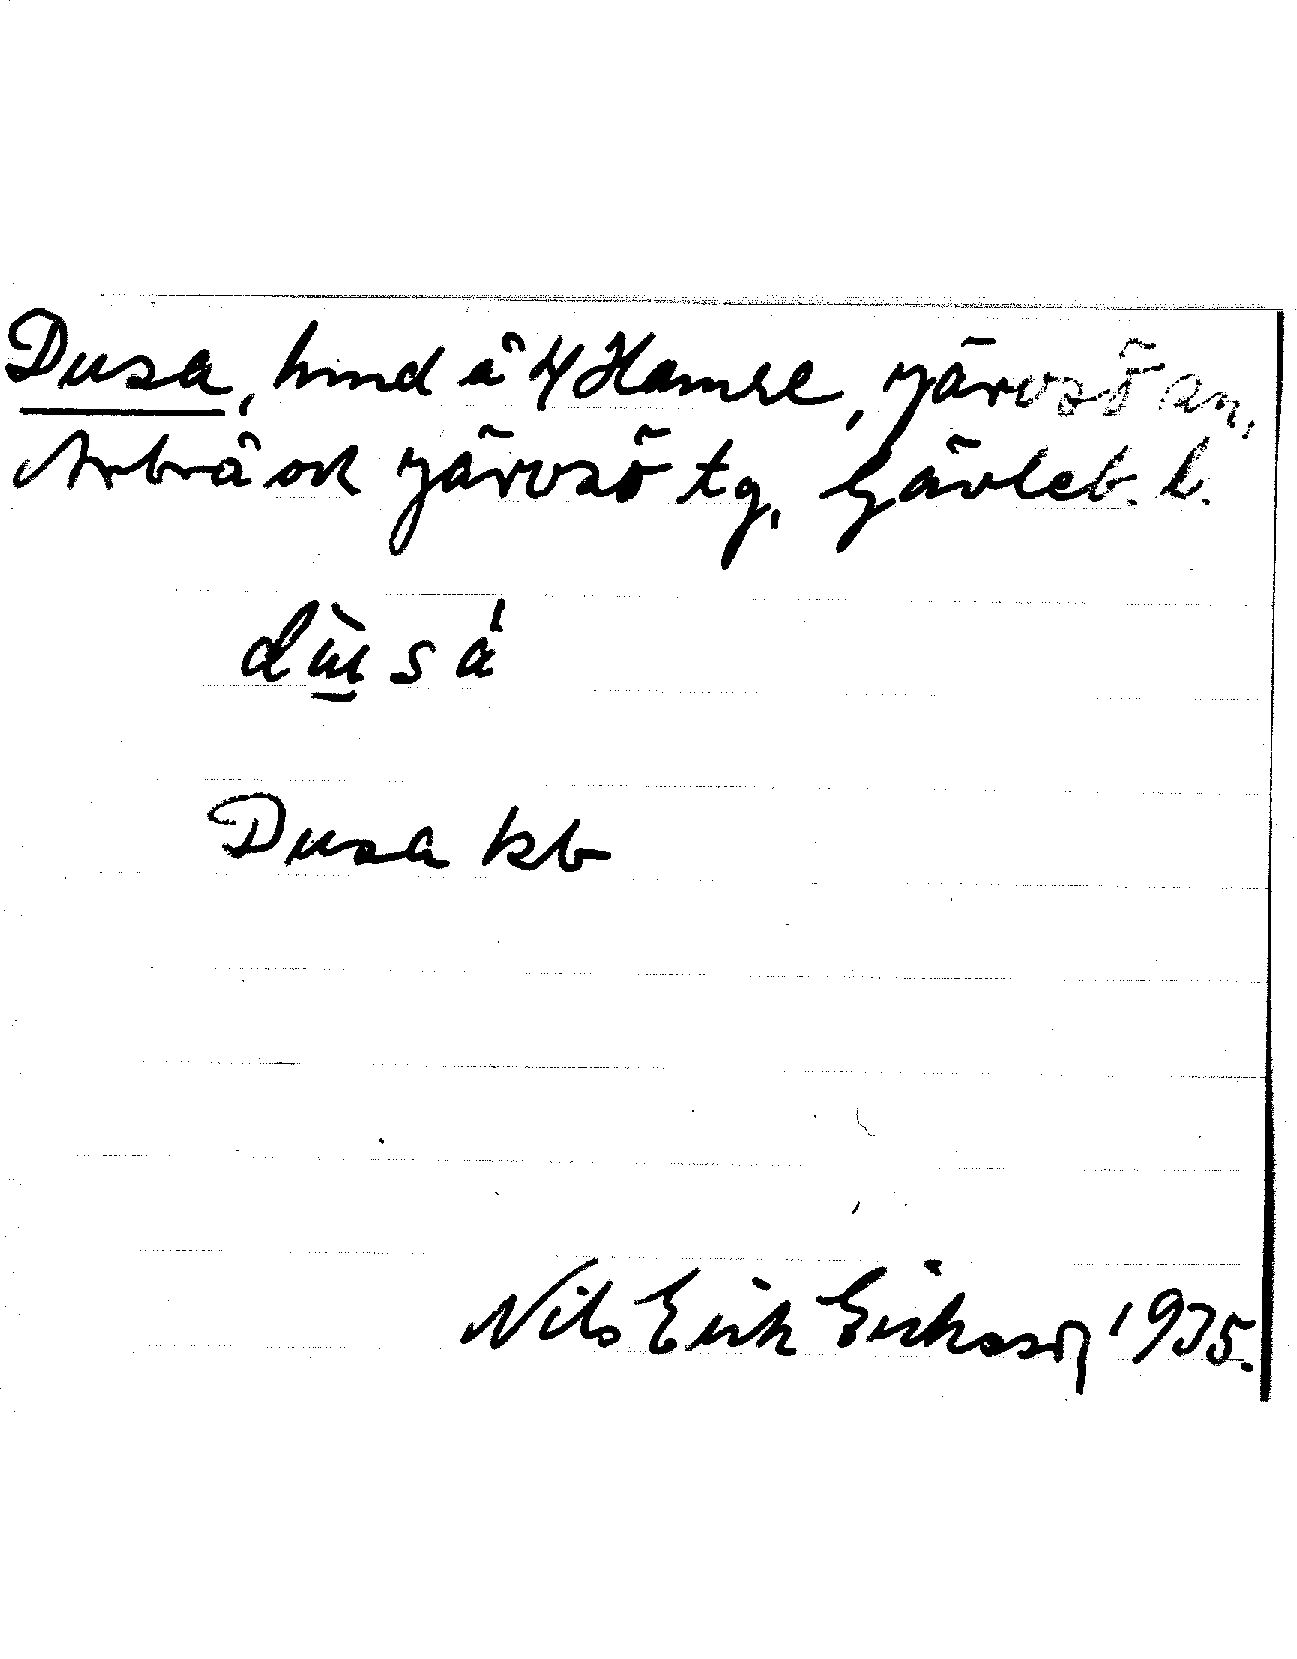 Dusa, hmd å 4 Hamre, Järvsö sn,
Arbrå och Järvsö tg, Gävleb. l.
dùsá
Dusa kb
Nils Erik Eriksson 1935.